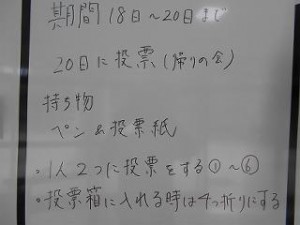 期間 18日〜20日まで
20日に投票(帰りの会)
持ち物
ペン&投票紙
・1人2つに投票をする①〜⑥
・投票箱に入れる時は4つ折りにする